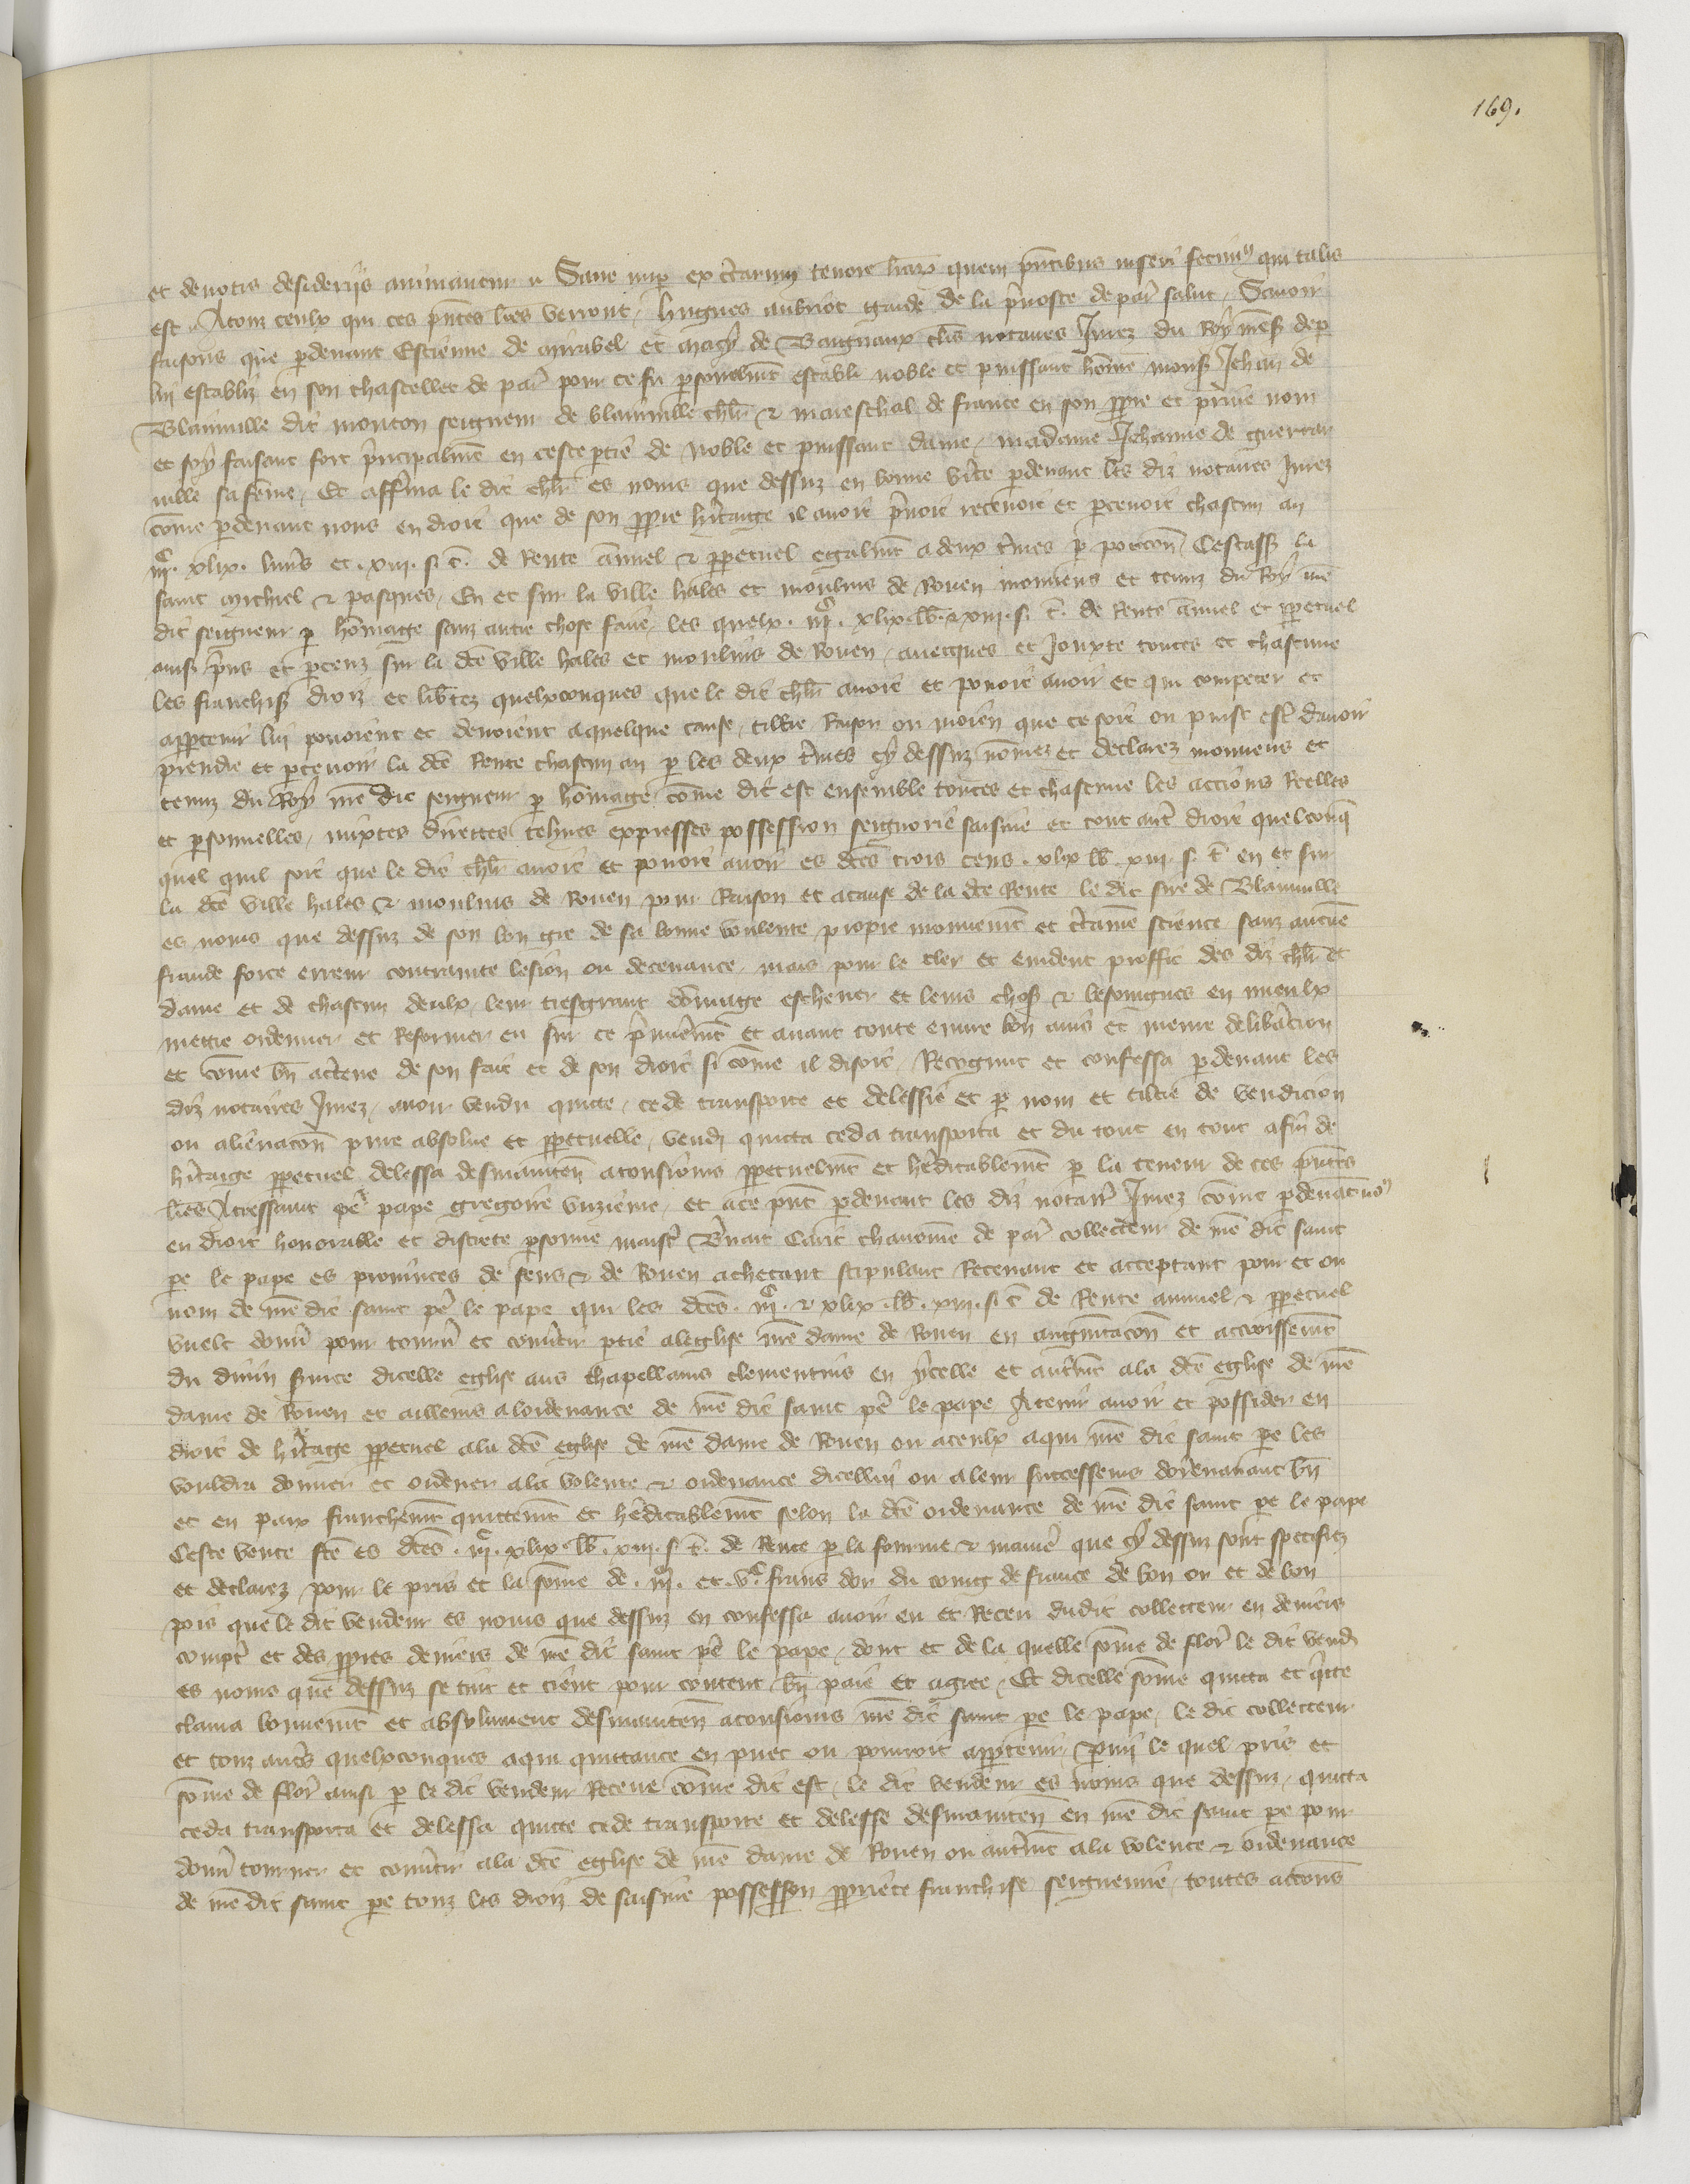 169.
et devotis desideriis animantur. Sane nuper ex certarum tenore litterarum quem pñtibus inseri fecimus qui talis
est. A touz ceulx qui ces pñtes lres verront, Hugues Aubriot garde de la p'voste de par' salut, Savoir
faisons que pardevant Estienne de Mirabel et Macy de Baigneux clers notaires Jurez du Roy ñres' de p
lui establiz en son chastellet de par' pour ce fu psonelmt establi noble et puissant hōme mons' Jehan de
Blainville dit mouton seigneur de blainville chlr & mareschal de france en son ppre et prive nom
et soy faisant fort p'ncipalmt en ceste ptie de noble et puissant dame, madame Jehanne de
ville sa fēme, Et afferma le dit chlr es noms que dessuz en bonne v'ite pdevant les diz notaires Jurez
cōme pdevant nous en droit que de son ppre h'itaige il avoit p'noit recevoit et pcevoit chascun an
iijc. xlix. livrs et. xiii. s. t. de Rente ānuel & ppetuel egalmt a deux t'mes p porcion, Cestass' la
saint Michiel & pasques, En et sur la ville hales et moulins de Rouen mouvens et tenuz du Roy ñre
dit seigneur p hōmage sanz autre chose faire, les quelx. iijc. xlix. lb. & xiii. s. t. de Rente ānuel et ppetuel
ainsi p'ns et pceuz sur la dte ville hales et moulins de Rouen, avecques et Jouxte toutes et chascune
les franchis' droiz et lib'tez quelxconques que le dit chlr avoit et povoit avoir et qui competer et
apptenir lui povoient et devoient a quelque cause, tiltre Raison ou moien que ce soit ou puist est' davoir
prendre et pcevoir la dte Rente chascun an p les deux t'mes cy dessuz nōmez et declarez mouvens et
tenuz du Roy ñre dit seigneur p hōmage cōme dit est ensemble toutes et chascune les accions Reelles
et psonnelles, mixtes directes expresses possession seignorie saisine et tout aut' droit quelconq
quel quil soit que le dit chlr avoit et povoit avoir es dtes trois cens. xlix lb. xiii. s. t. en et sur
la dte ville hales & moulins de Rouen pour Raison et a cause de la dte Rente le dit sire de Blainville
es noms que dessuz de son bon gre de sa bonne voulente, propre mouvemt et c'taine science sanz aucune
fraude force erreur contrainte lesion ou decevance, mais pour le cler et evident proffit des diz chlr et
dame et de chascun deulx, leur tresgrant dōmage eschever et leurs chos' & besoingnes en mieulx
mettre ordener et Reformer eu sur ce p'mierемt et avant toute euvre bon avis et meure delib'acion
et cōme bñ ac'tene de son fait et de son droit si cōme il disoit, Recognut et confessa pdevant les
diz notaires Jurez, avoir vendu quitte, cede transporte et delessie et p nom et tiltre de vendicion
ou alienacōn pure absolue et ppetuelle, vendi quitta ceda transporta et du tout en tout a fin de
h'itaige ppetuel delessa desmainteñ a tousiours ppetuelmt et h'editablemt p la teneur de ces pñtes
lres A tressaint pe' pape gregoire unzieme, et a ce pñt pdevant les diz notair' Jurez cōme pdevāt nous
en droit honorable et discrete psonne maist' B'nart Carit chanoine de par' collecteur de ñre dit saint
pe le pape es provinces de sens & de Rouen achetant stipulant Recevant et acceptant pour et ou
nom de ñre dit saint pe' le pape qui les dtes. iijc. & xlix. lb. xiii. s. t de Rente annuel & ppetuel
vuelt donn' pour tourn' et conv'tir ptie a leglise ñre dame de Rouen en augmtacōn et accroissemt
du divin s'vice dicelle eglise aus chapellains clementins en ycelle et aut'mt a la dte eglise de ñre
dame de Rouen et ailleurs a lordenance de ñre dit saint pe' le pape A tenir avoir et possider en
droit de h'itage ppetuel a la dte eglise de ñre dame de Rouen ou a ceulx a qui ñre dit saint pe les
vouldra donner et ordener a la volente & ordenance dicellui ou a leur successeurs dorenavant bñ
et en paix franchemt quittemt et h'editablemt selon la dte ordenance de ñre dit saint pe le pape
Ceste vente fte es dtes. iijc. xlix. lb. xiii. s. t. de Rente p la fourme & manie' que cy dessuz sont specifiez
et declarez, pour le pris et la sōme de. iijm. et. vc. frans dor du coing de france de bon or et de bon
pois que le dit vendeur es noms que dessuz en confessa avoir eu et Receu dudit collecteur en deniers
compt' et des ppres deniers de ñre dit saint pe' le pape, dont et de la quelle sōme de flor' le dit vend'
es noms que dessuz se tint et tient pour content bñ paie et agree, Et dicelle sōme quitta et q'tte
clama bonnemt et absolument desmainteñ a tousiours ñre dit saint pe le pape, le dit collecteur
et touz aut's quelxconques a qui quittance en puet ou pourroit appteñir, Parmi le quel pris et
sōme de flor' ainsi p le dit vendeur Receue cōme dit est, le dit vendeur es noms que dessuz, quitta
ceda transporta et delessa quitte cede transporte et delesse desmainteñ en ñre dit saint pe pour
donn' tourner et conv'tir a la dte eglise de ñre dame de Rouen ou aut'mt a la volente & ordenance
de ñre dit saint pe touz les droiz de saisine possession ppriete franchise seigneurie, toutes accons